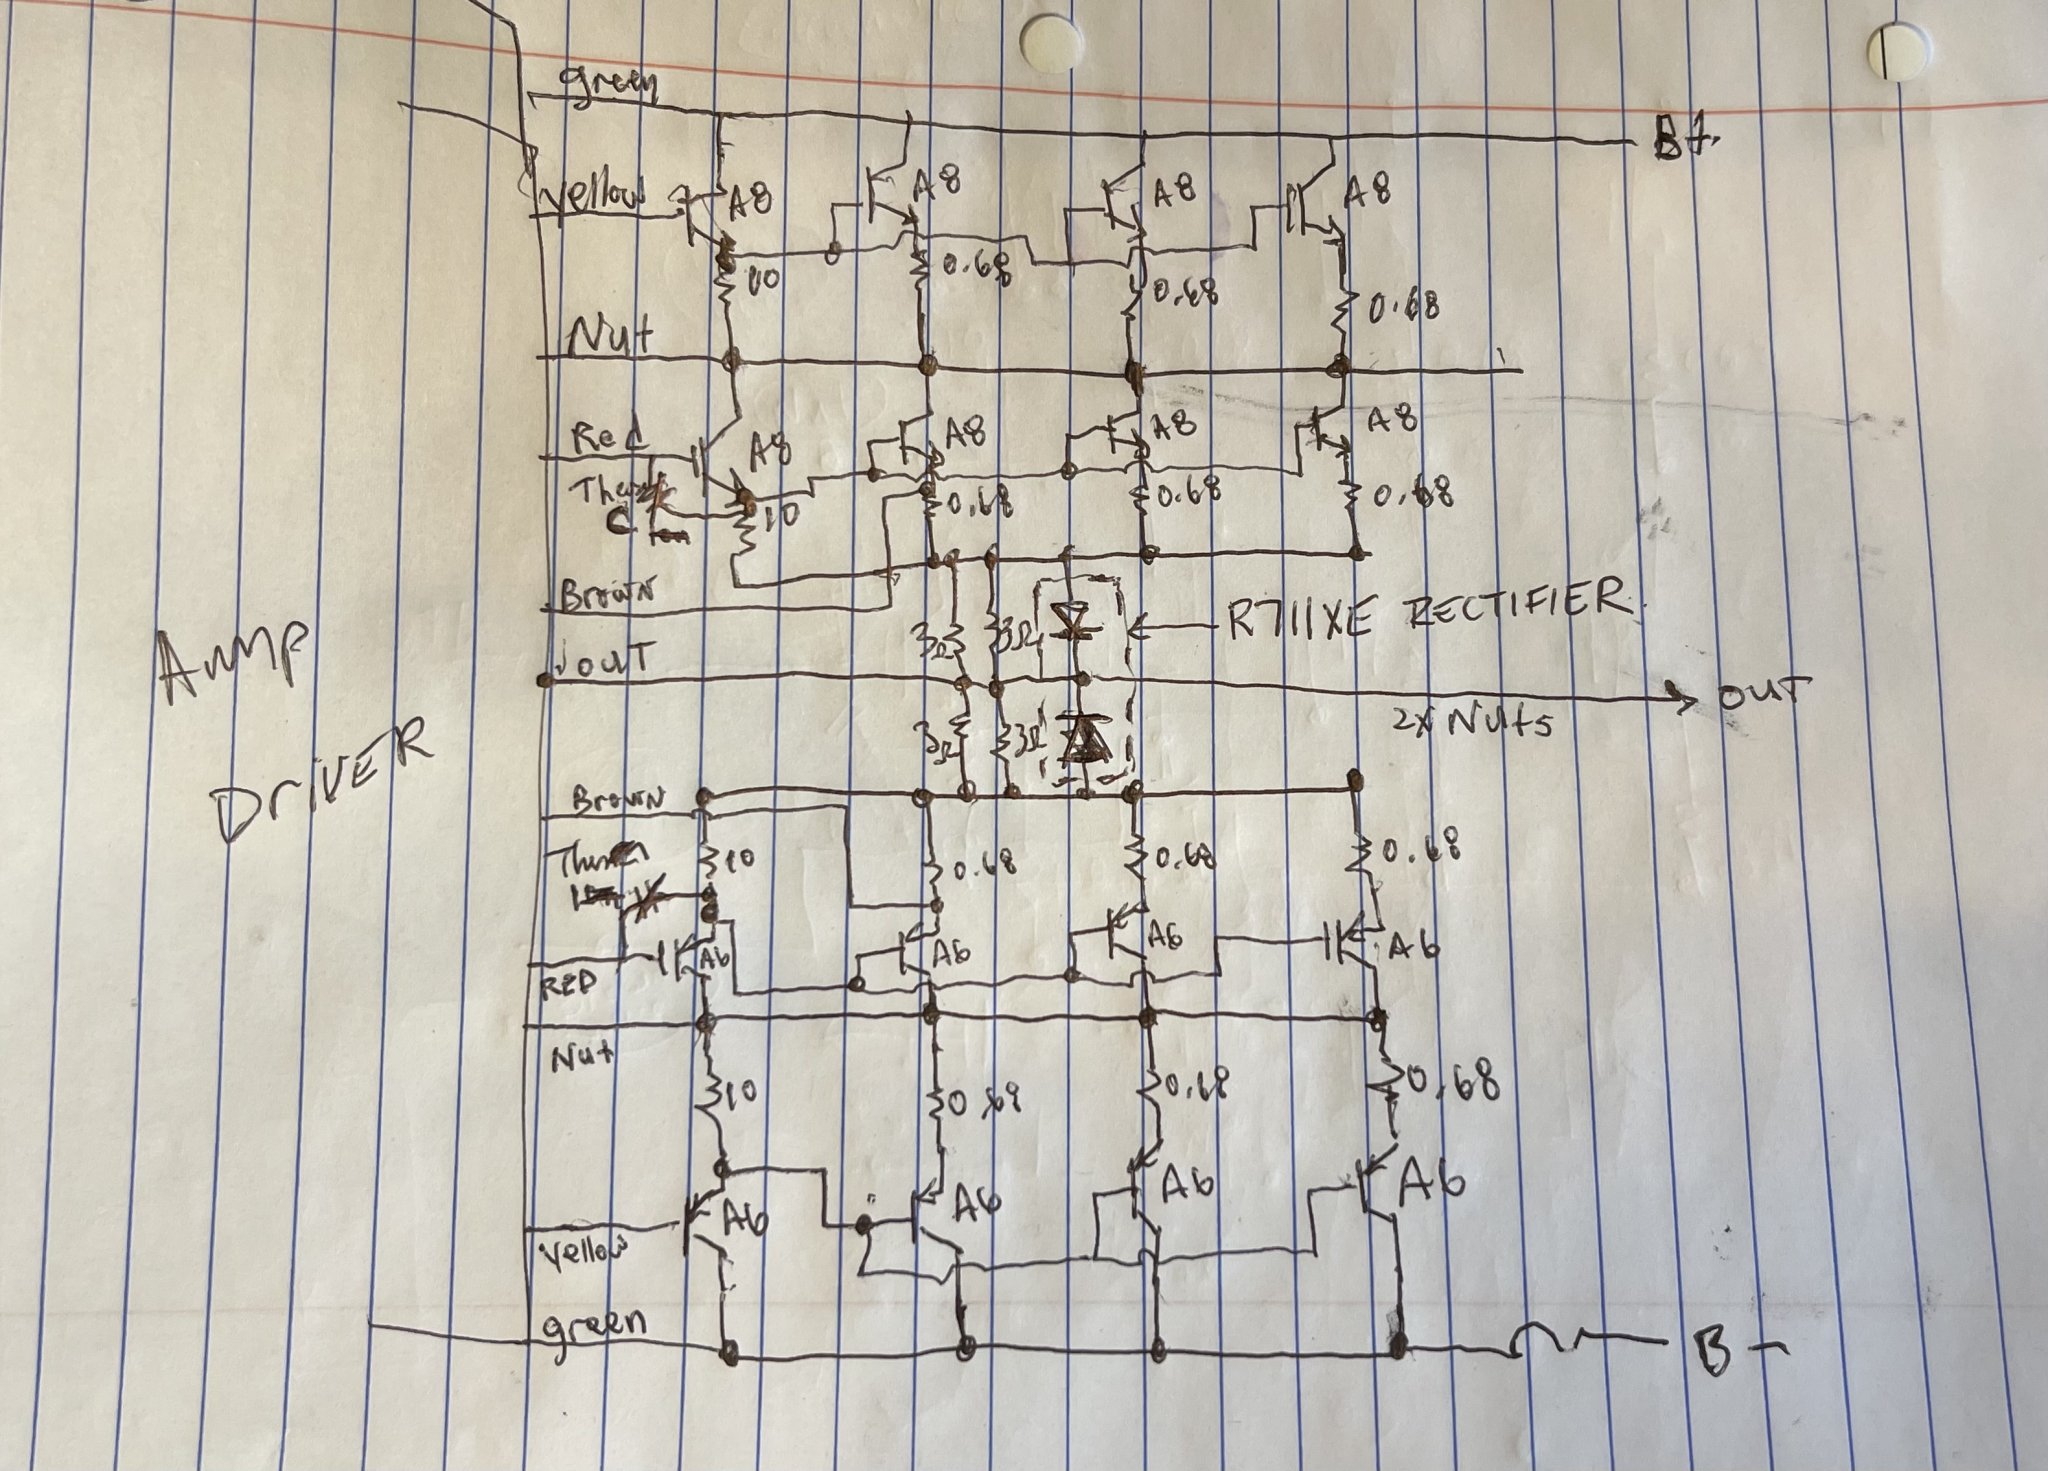 green
B+
yellow A8 A8 A8 A8
10 0.68 0.68 0.68
Nut
Red A8 A8 A8 A8
C 10 0.68 0.68 0.68
Brown
3Ω 3Ω R711XE RECTIFIER
out OUT
2x Nuts
3Ω 3Ω
Amp
DRIVER
Brown
10 0.68 0.68 0.68
RED A6 A6 A6 A6
Nut
10 0.68 0.68 0.68
yellow A6 A6 A6 A6
green B-